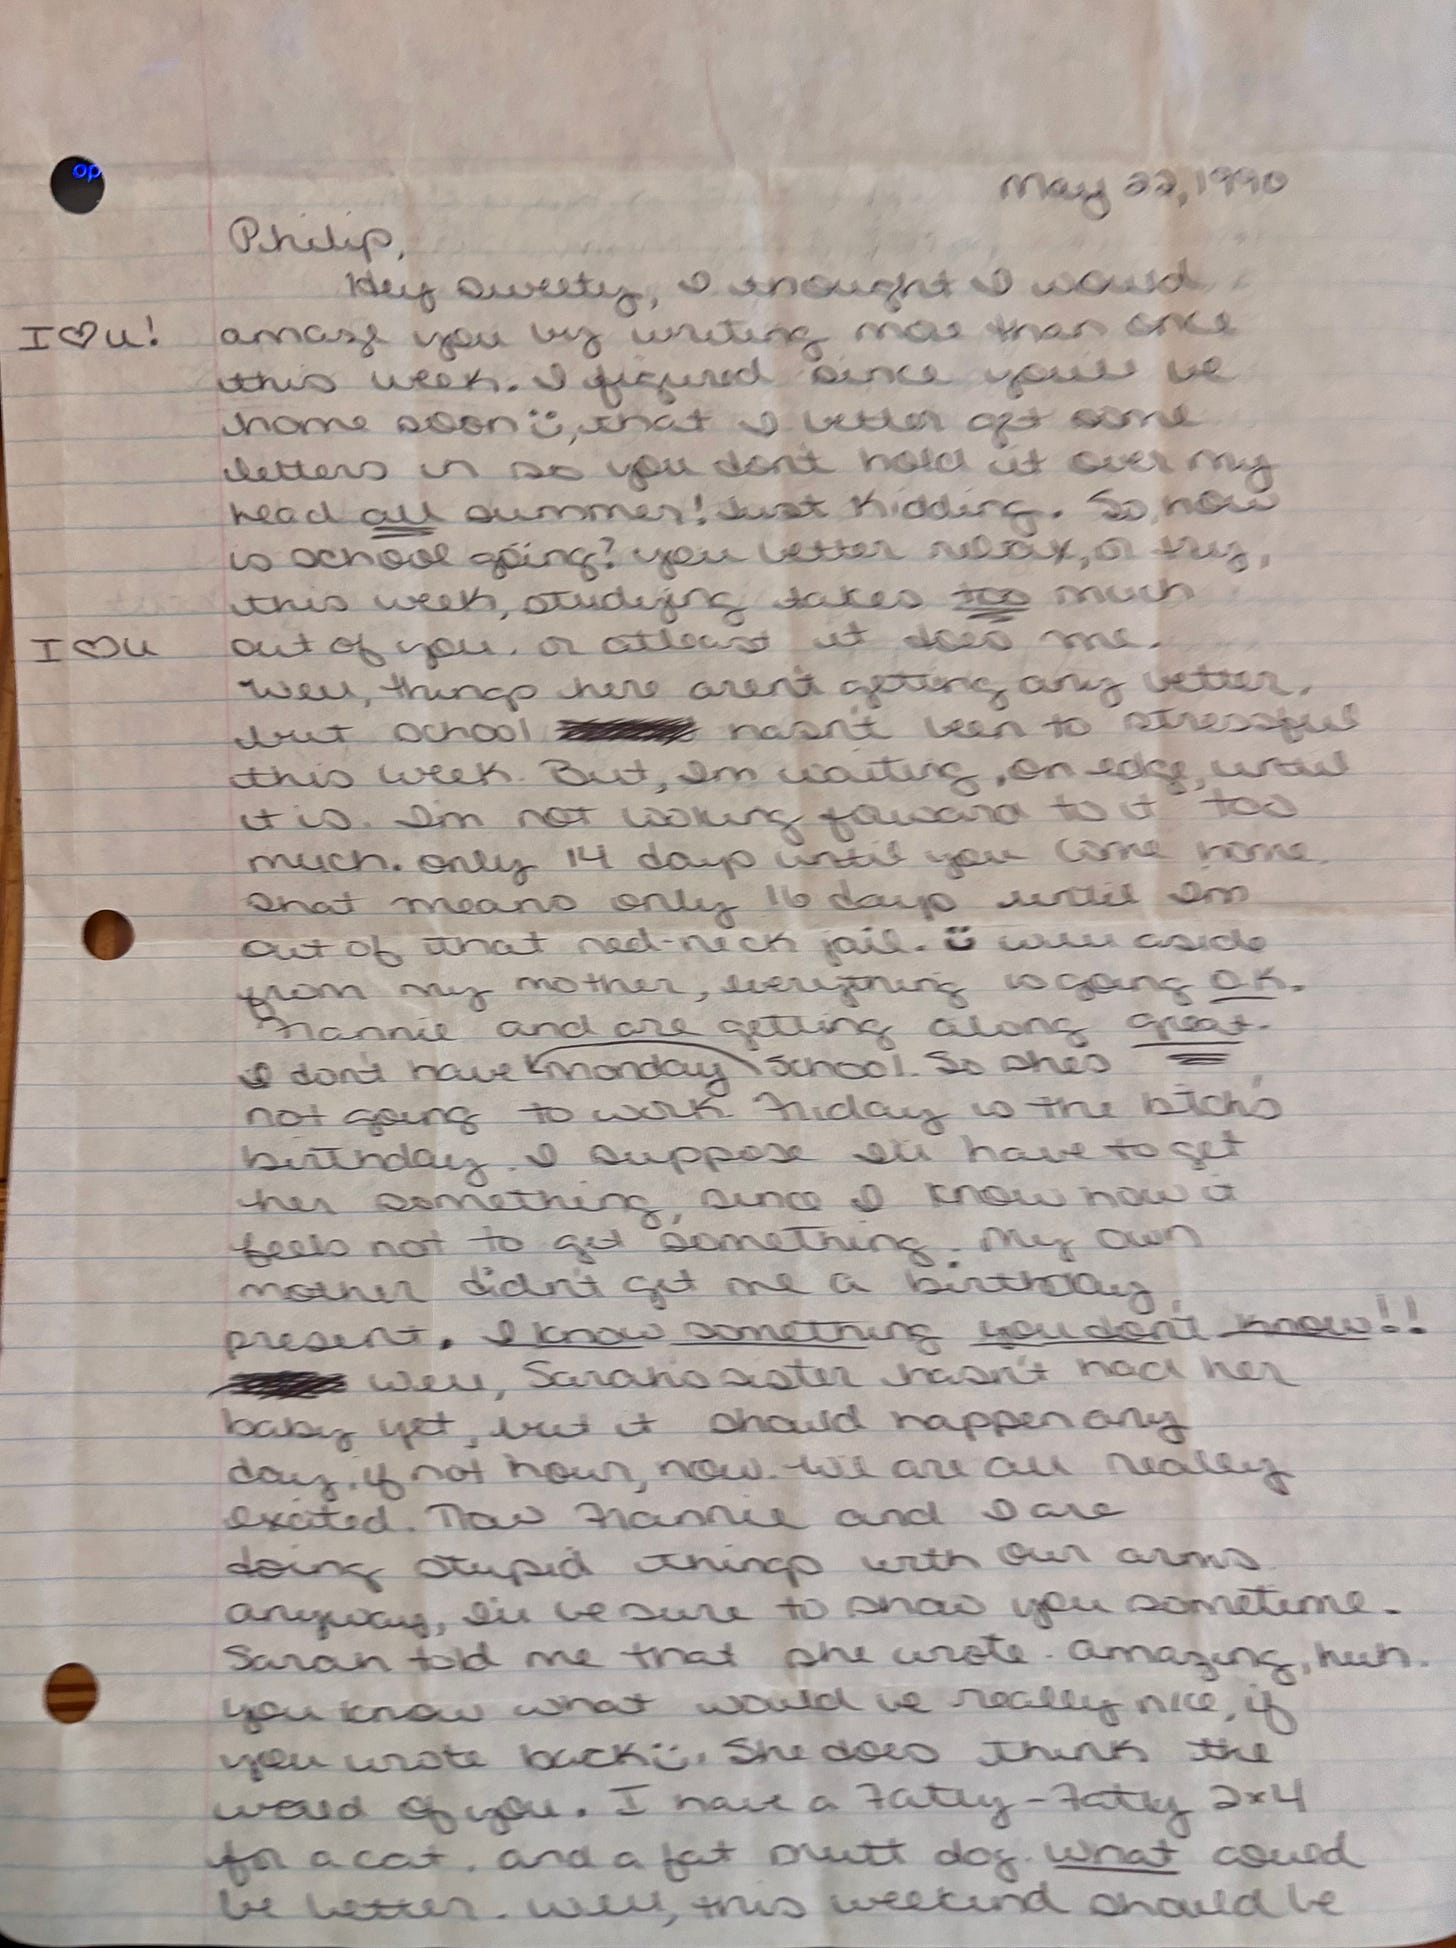 op
May 22, 1990
Philip,
Hey sweety, I thought I would
I♡u! amaze you by writing more than once
this week. I figured since you'll be
home soon :), that I better get some
letters in so you don't hold it over my
head all summer! Just Kidding. So, how
is school going? you better relax, or try,
this week, studying takes too much
I♡u out of you. or atleast it does me.
Well, things here aren't getting any better,
but school hasn't been to stressful
this week. But, Im waiting, on edge, until
it is. Im not looking foward to it too
much. only 14 days until you come home.
That means only 16 days until Im
out of that red-neck jail. :) well aside
from my mother, everything is going O.K.
Frannie and are getting along great.
I don't have Monday School. So shes
not going to work. Friday is the bitch's
birthday. I suppose I'll have to get
her something, since I know how it
feels not to get something. My own
mother didn't get me a birthday
present. I know something you don't know!!
Well, Sarahs sister hasn't had her
baby yet, but it should happen any
day, if not hour, now. We are all really
excited. Now Frannie and I are
doing stupid things with our arms
anyway, I'll be sure to show you sometime.
Sarah told me that she wrote. Amazing, huh.
you know what would be really nice, if
you wrote back :). She does think the
world of you. I have a Fatty-Fatty 2x4
for a cat. and a fat mutt dog. what could
be better. Well, this weekend should be